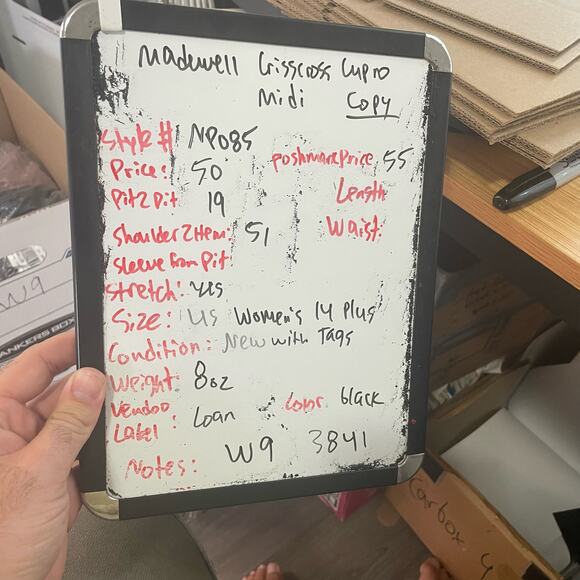 Madewell Crisscross Cupro
Midi Copy
Style# NP085
Price: 50 poshmark Price 55
Pit2Pit 19 Length
Shoulder2Hem: 51 Waist:
Sleeve From Pit
Stretch: yes
Size: US Women's 14 Plus
Condition: New with Tags
Weight: 8oz
Vendoo Label: Loan Color: black
Notes: W9 3841
W9
ANKERS BOX
Carbox 4